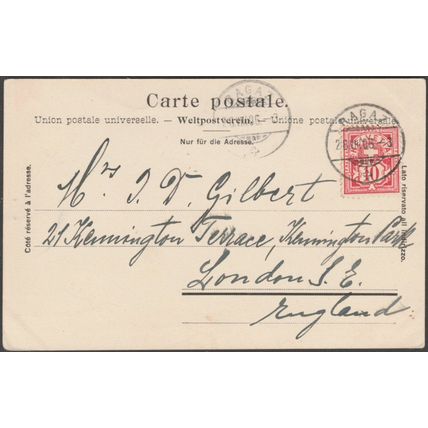 RAGAZ
Carte postale.
Union postale universelle. — Weltpostverein. — Unione postale universale.
Nur für die Adresse.
RAGAZ
10
Côté réservé à l'adresse.
Lato riservato all' indirizzo.
Mrs J. D. Gilbert
21 Kennington Terrace, Kennington Park
London S. E.
England